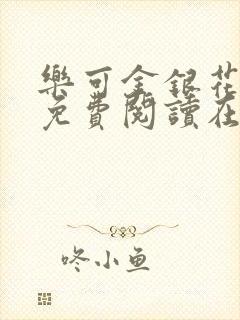 樂可金銀花
免費閱讀在
咚小鱼